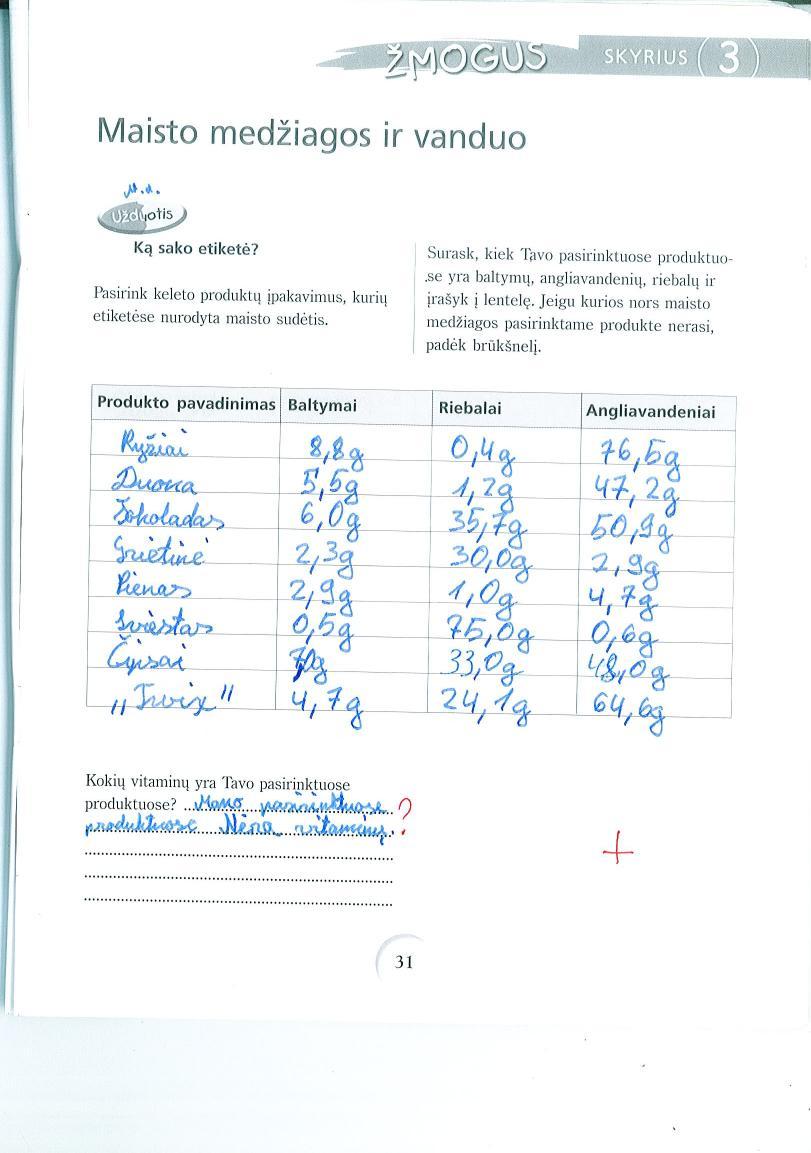 ŽMOGUS SKYRIUS 3
Maisto medžiagos ir vanduo
Užduotis
Ką sako etiketė?
Pasirink keleto produktų įpakavimus, kurių
etiketėse nurodyta maisto sudėtis.
Surask, kiek Tavo pasirinktuose produktuo-
se yra baltymų, angliavandenių, riebalų ir
įrašyk į lentelę. Jeigu kurios nors maisto
medžiagos pasirinktame produkte nerasi,
padėk brūkšnelį.
Produkto pavadinimas Baltymai Riebalai Angliavandeniai
Ryžiai 8,8g 0,4g 76,5g
Duona 5,5g 1,2g 47,2g
Šokoladas 6,0g 35,7g 50,9g
Grietinė 2,3g 30,0g 2,9g
Pienas 2,9g 1,0g 4,7g
Sviestas 0,5g 75,0g 0,6g
Čipsai 33,0g 48,0g
„Twix" 4,7g 24,1g 64,6g
Kokių vitaminų yra Tavo pasirinktuose
produktuose? Mano pasirinktuose ?
produktuose Nėra vitaminų.
+
31